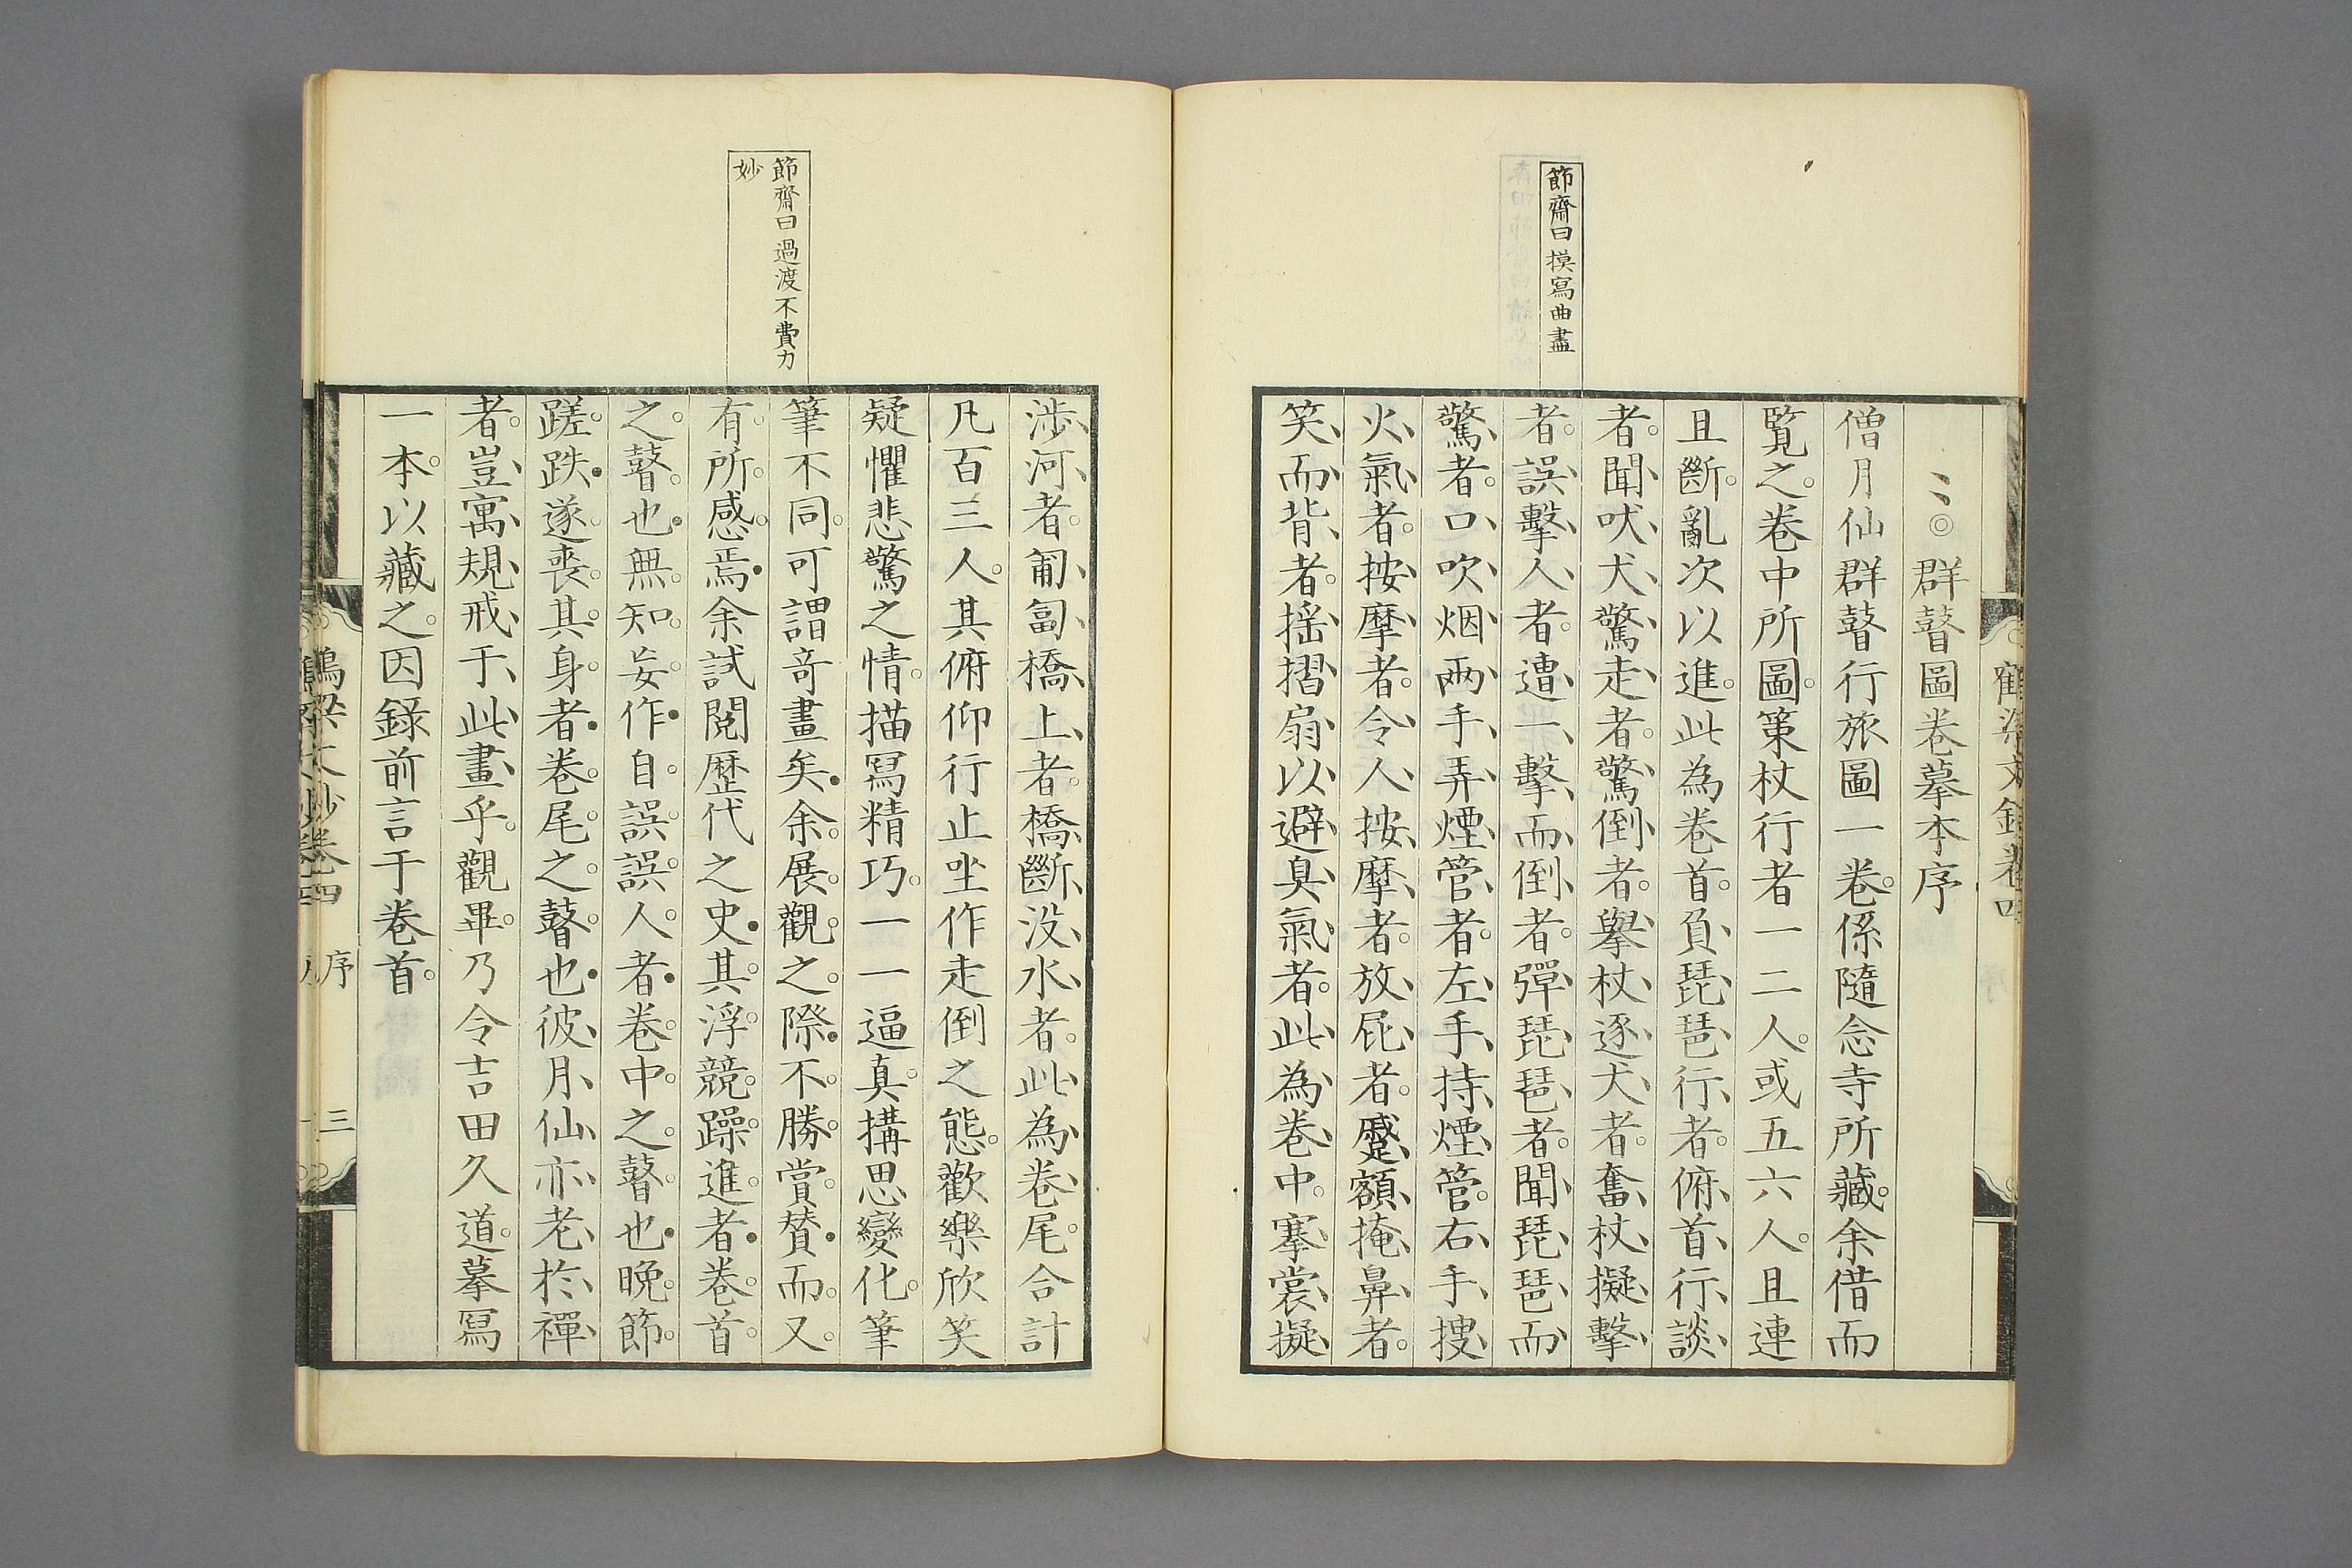 節齋曰摸寫曲盡
群瞽圖卷摹本序
僧月仙群瞽行旅圖一卷係隨念寺所藏余借而
覧之卷中所圖策杖行者一二人或五六人且連
且斷亂次以進此為卷首負琵琶行者俯首行談
者聞吠犬驚走者驚倒者擧杖逐犬者奮杖擬擊
者誤擊人者遭一擊而倒者彈琵琶者聞琵琶而
驚者口吹烟兩手弄煙管者左手持煙管右手搜
火氣者按摩者令人按摩者放屁者蹙額掩鼻者
笑而背者揺摺扇以避臭氣者此為卷中搴裳擬
節齋曰過渡不費力
妙
渉河者匍匐橋上者橋斷没水者此為卷尾合計
凡百三人其俯仰行止坐作走倒之態歡樂欣笑
疑懼悲驚之情描冩精巧一一逼真搆思變化筆
筆不同可謂竒畫矣余展觀之際不勝賞賛而又
有所感焉余試閲歴代之史其浮競躁進者卷首
之瞽也無知妄作自誤誤人者卷中之瞽也晚節
蹉跌遂喪其身者卷尾之瞽也彼月仙亦老於禪
者豈寓規戒于此畫乎觀畢乃令吉田久道摹冩
一本以藏之因録前言于卷首
序
三